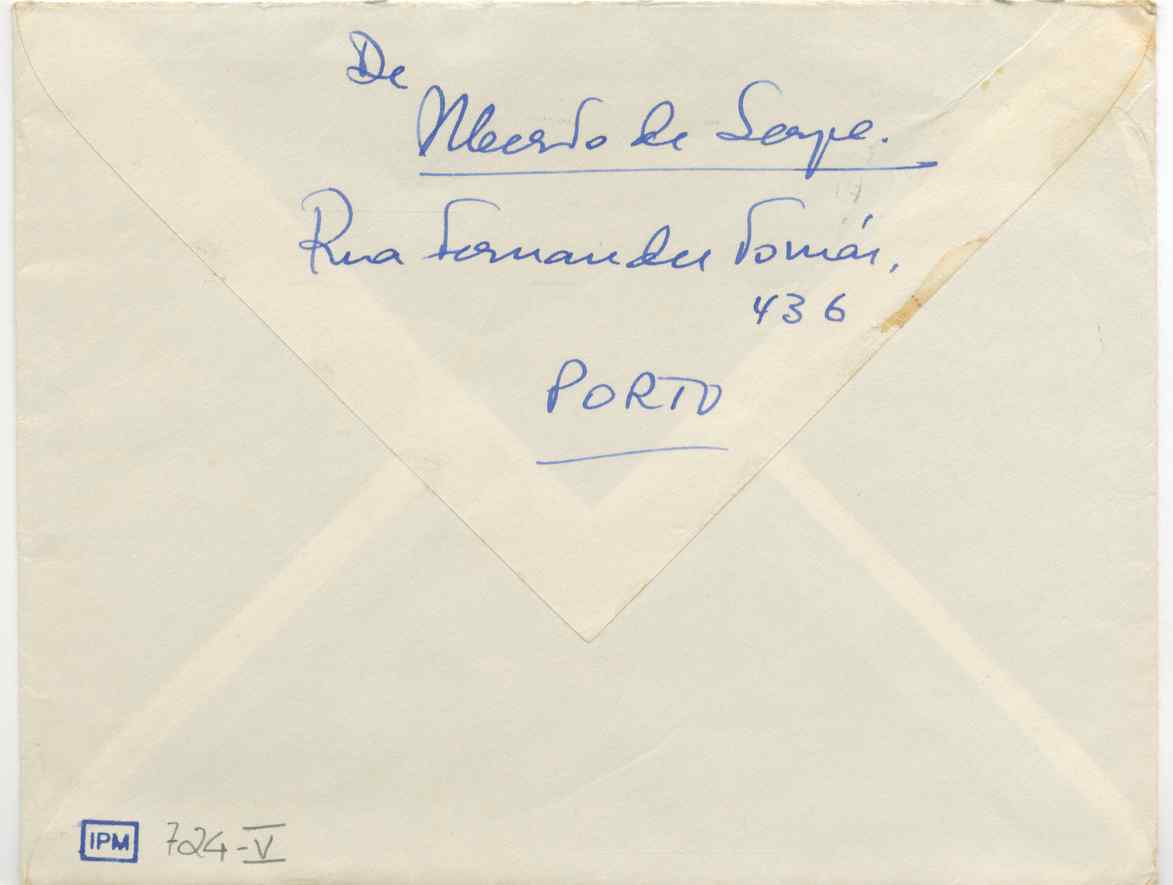 De
Alberto de Serpa.
Rua Fernandes Tomás,
436
PORTO
IPM 724-V